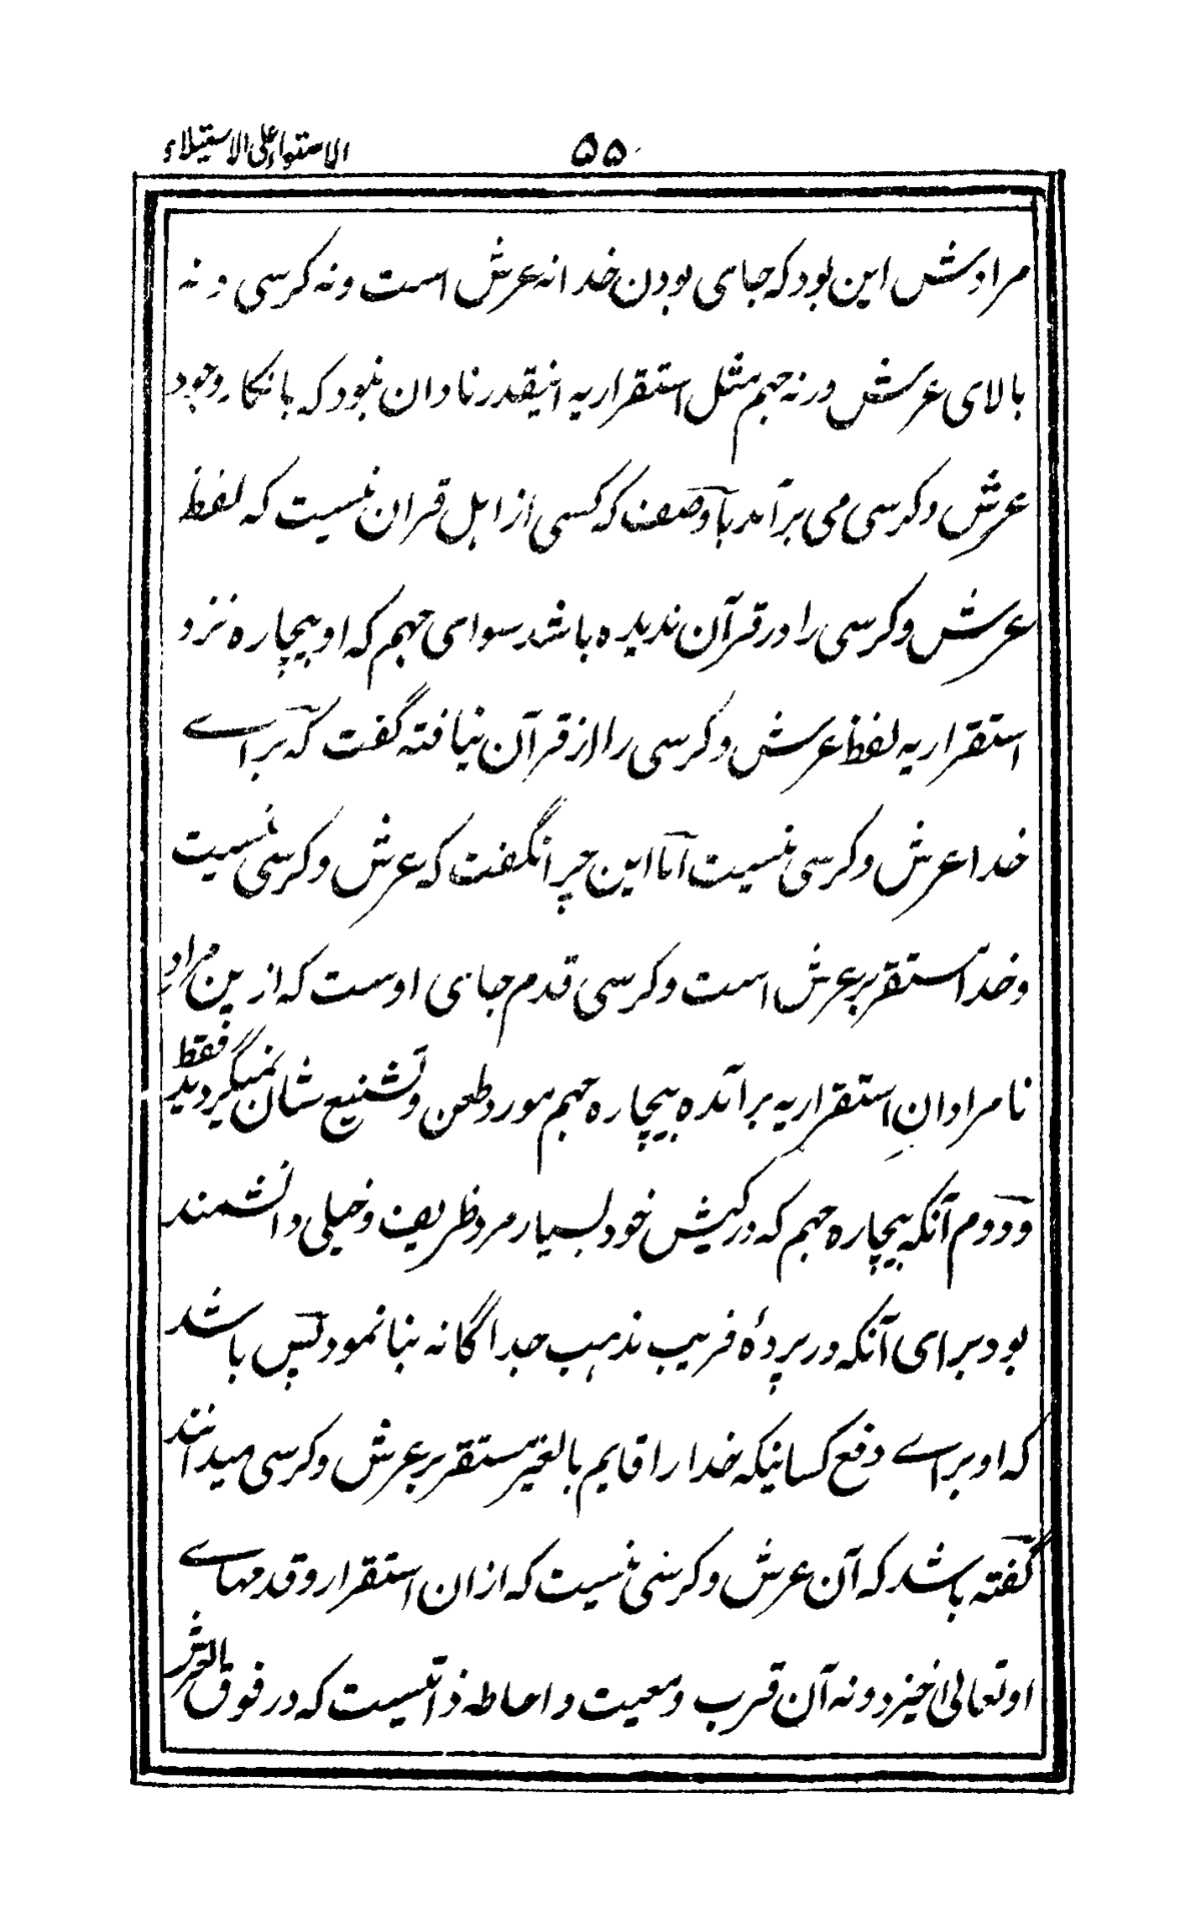 ۵۵ الاستواء علی الاستیلاء
مرادش این بود که جای بودن خدا نه عرش است و نه کرسی و نه
بالای عرش ورنه جهم مثل استقراریه اینقدر نادان نبود که بانکار وجود
عرش و کرسی می برآمد باوصف که کسی از اهل قران نیست که لفظ
عرش و کرسی را در قرآن ندیده باشد سوای جهم که او بیچاره نزد
استقراریه لفظ عرش و کرسی را از قرآن نیافته گفت که براے
خدا عرش و کرسی نیست اما این چرا نگفت که عرش و کرسی نیست
و خدا مستقر بر عرش است و کرسی قدم جای اوست که ازین مراد
نامرادانِ استقراریه برآمده بیچاره جهم مورد طعن و تشنیع شان نمیگردید فقط
و دوم آنکه بیچاره جهم که در کیش خود بسیار مرد ظریف و خیلی دانشمند
بود برای آنکه در پردۀ فریب مذهب جداگانه بنا نمود پس باشد
که او براے دفع کسانیکه خدا را قایم بالغیر مستقر بر عرش و کرسی میدانند
گفته باشد که آن عرش و کرسی نیست که ازان استقرار و قدمهاے
او تعالی خیزد و نه آن قرب و معیت و احاطه ذاتیست که در فوق العرش